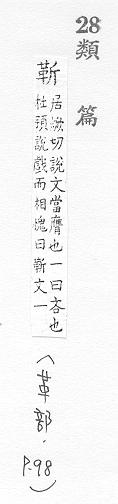 28
類篇
靳
居焮切說文當膺也一曰吝也
杜預說戲而相愧曰靳文一
(革部,P.98)